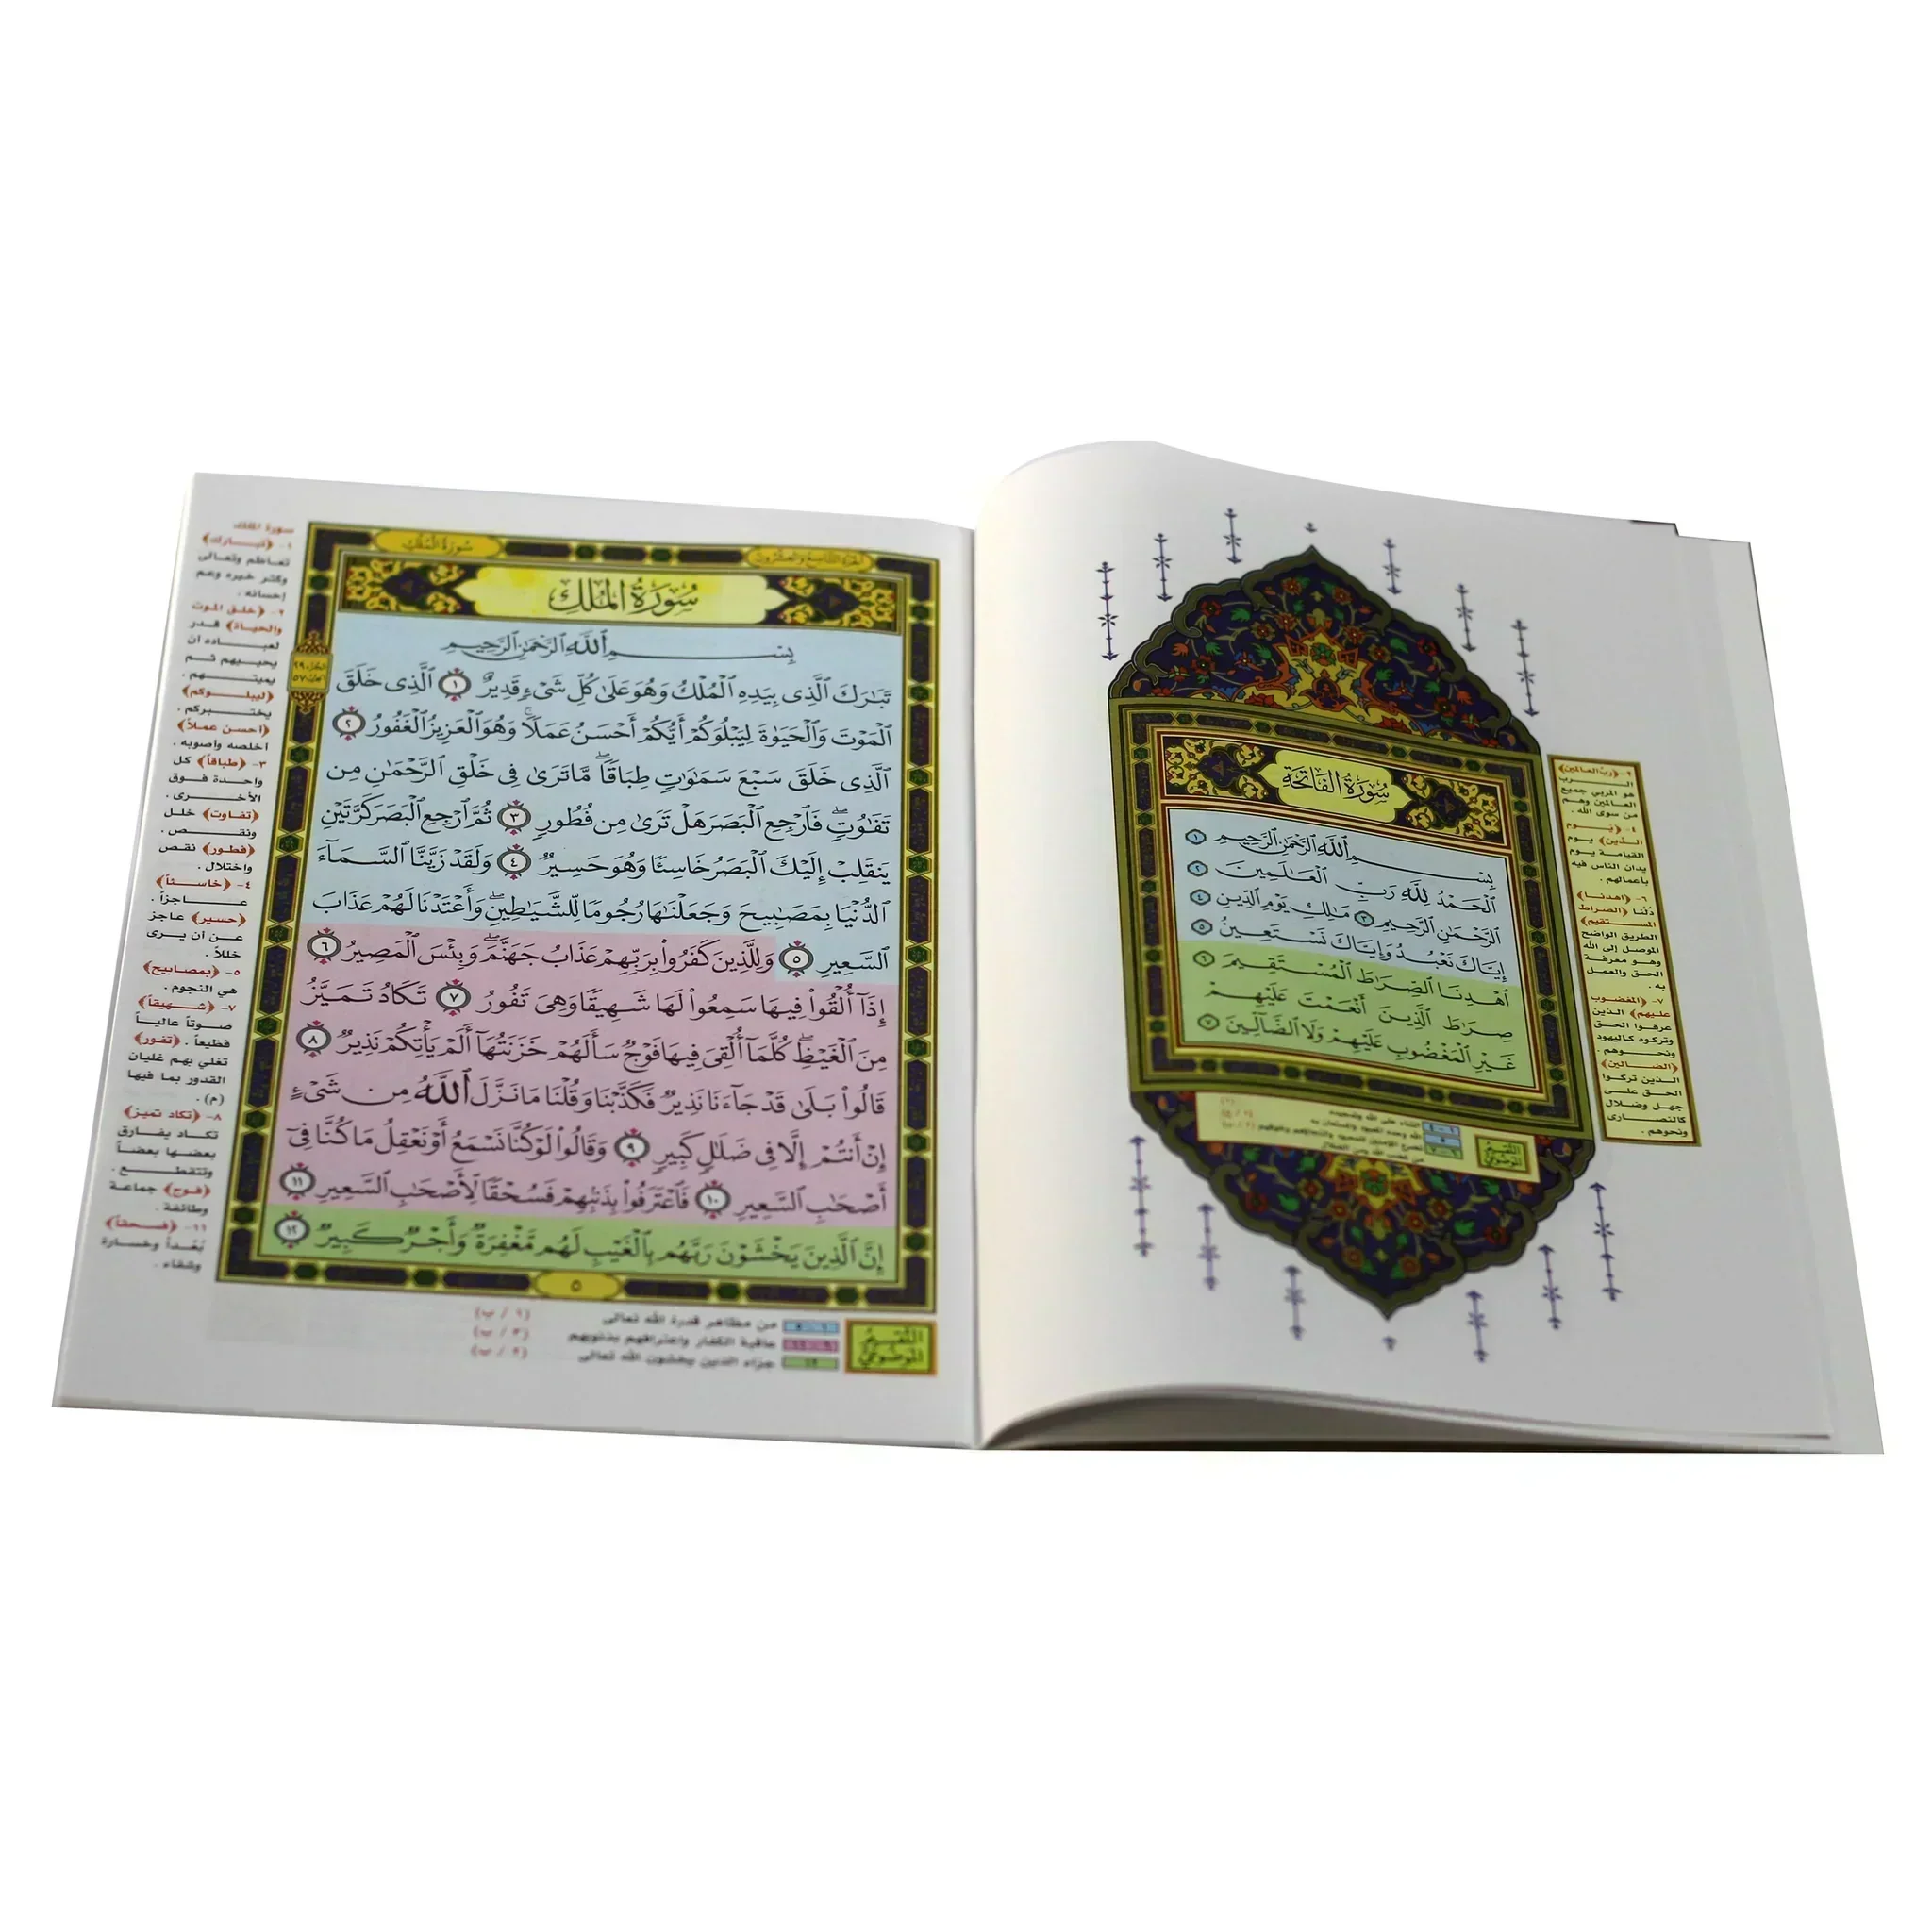 سُورَةُ الفَاتِحَةِ
بِسْمِ ٱللَّهِ ٱلرَّحْمَٰنِ ٱلرَّحِيمِ ١
ٱلْحَمْدُ لِلَّهِ رَبِّ ٱلْعَٰلَمِينَ ٢
ٱلرَّحْمَٰنِ ٱلرَّحِيمِ ٣ مَٰلِكِ يَوْمِ ٱلدِّينِ ٤
إِيَّاكَ نَعْبُدُ وَإِيَّاكَ نَسْتَعِينُ ٥
ٱهْدِنَا ٱلصِّرَٰطَ ٱلْمُسْتَقِيمَ ٦
صِرَٰطَ ٱلَّذِينَ أَنْعَمْتَ عَلَيْهِمْ
غَيْرِ ٱلْمَغْضُوبِ عَلَيْهِمْ وَلَا ٱلضَّآلِّينَ ٧
٢- ﴿رب العالمين﴾
الـــرب
هو المربي جميع
العالمين وهم
من سوى الله .
٤- ﴿يـوم
الـدين﴾ يـوم
القيامة يـوم
يدان الناس فيه
بأعمالهم .
٦- ﴿اهدنـا﴾
دُلنا ﴿الصراط
المستقيم﴾
الطريق الواضح
الموصل إلى الله
وهو معرفة
الحق والعمل
به .
٧- ﴿المغضوب
عليهم﴾ الذين
عرفوا الحق
وتركوه كاليهود
ونحوهم .
﴿الضالين﴾
الذين تركوا
الحق على
جهل وضلال
كالنصارى
ونحوهم .
التقسيم
الموضوعي
سُورَةُ المُلْكِ
الجزء التاسع والعشرون
سُورَةُ المُلْكِ
بِسْمِ ٱللَّهِ ٱلرَّحْمَٰنِ ٱلرَّحِيمِ
تَبَٰرَكَ ٱلَّذِى بِيَدِهِ ٱلْمُلْكُ وَهُوَ عَلَىٰ كُلِّ شَىْءٍ قَدِيرٌ ١ ٱلَّذِى خَلَقَ
ٱلْمَوْتَ وَٱلْحَيَوٰةَ لِيَبْلُوَكُمْ أَيُّكُمْ أَحْسَنُ عَمَلًا ۚ وَهُوَ ٱلْعَزِيزُ ٱلْغَفُورُ ٢
ٱلَّذِى خَلَقَ سَبْعَ سَمَٰوَٰتٍ طِبَاقًا ۖ مَّا تَرَىٰ فِى خَلْقِ ٱلرَّحْمَٰنِ مِن
تَفَٰوُتٍ ۖ فَٱرْجِعِ ٱلْبَصَرَ هَلْ تَرَىٰ مِن فُطُورٍ ٣ ثُمَّ ٱرْجِعِ ٱلْبَصَرَ كَرَّتَيْنِ
يَنقَلِبْ إِلَيْكَ ٱلْبَصَرُ خَاسِئًا وَهُوَ حَسِيرٌ ٤ وَلَقَدْ زَيَّنَّا ٱلسَّمَآءَ
ٱلدُّنْيَا بِمَصَٰبِيحَ وَجَعَلْنَٰهَا رُجُومًا لِّلشَّيَٰطِينِ ۖ وَأَعْتَدْنَا لَهُمْ عَذَابَ
ٱلسَّعِيرِ ٥ وَلِلَّذِينَ كَفَرُوا۟ بِرَبِّهِمْ عَذَابُ جَهَنَّمَ ۖ وَبِئْسَ ٱلْمَصِيرُ ٦
إِذَآ أُلْقُوا۟ فِيهَا سَمِعُوا۟ لَهَا شَهِيقًا وَهِىَ تَفُورُ ٧ تَكَادُ تَمَيَّزُ
مِنَ ٱلْغَيْظِ ۖ كُلَّمَآ أُلْقِىَ فِيهَا فَوْجٌ سَأَلَهُمْ خَزَنَتُهَآ أَلَمْ يَأْتِكُمْ نَذِيرٌ ٨
قَالُوا۟ بَلَىٰ قَدْ جَآءَنَا نَذِيرٌ فَكَذَّبْنَا وَقُلْنَا مَا نَزَّلَ ٱللَّهُ مِن شَىْءٍ
إِنْ أَنتُمْ إِلَّا فِى ضَلَٰلٍ كَبِيرٍ ٩ وَقَالُوا۟ لَوْ كُنَّا نَسْمَعُ أَوْ نَعْقِلُ مَا كُنَّا فِىٓ
أَصْحَٰبِ ٱلسَّعِيرِ ١٠ فَٱعْتَرَفُوا۟ بِذَنۢبِهِمْ فَسُحْقًا لِّأَصْحَٰبِ ٱلسَّعِيرِ ١١
إِنَّ ٱلَّذِينَ يَخْشَوْنَ رَبَّهُم بِٱلْغَيْبِ لَهُم مَّغْفِرَةٌ وَأَجْرٌ كَبِيرٌ ١٢
٥
سورة الملك
١- ﴿تبـارك﴾
تعاظم وتعالى
وكثر خيره وعم
إحسانه .
٢- ﴿خلق الموت
والحياة﴾ قدر
لعبـاده أن
يحييهم ثـم
يميتـهم .
﴿ليبلـوكم﴾
يختـبركم .
﴿أحسن عملاً﴾
أخلصه وأصوبه .
٣- ﴿طباقاً﴾ كل
واحدة فـوق
الأخـرى .
﴿تفاوت﴾ خلل
ونقـص .
﴿فطور﴾ نقـص
واختلال .
٤- ﴿خاسـئاً﴾
عـاجزاً .
﴿حسير﴾ عاجز
عن أن يرى
خللاً .
٥- ﴿بمصابيح﴾
هي النجوم .
٧- ﴿شـهيقاً﴾
صوتاً عالياً
فظيعاً . ﴿تفور﴾
تغلي بهم غليان
القدور بما فيها
(م) .
٨- ﴿تكاد تميز﴾
تكـاد يفـارق
بعضها بعضاً
وتتقطـع .
﴿فـوج﴾ جماعة
وطائفة .
١١- ﴿فسحقاً﴾
بُعْداً وخسارة
وشقاء .
التقسيم
الموضوعي
من مظاهر قدرة الله تعالى
عاقبة الكفار واعترافهم بذنوبهم
١٢ جزاء الذين يخشون الله تعالى